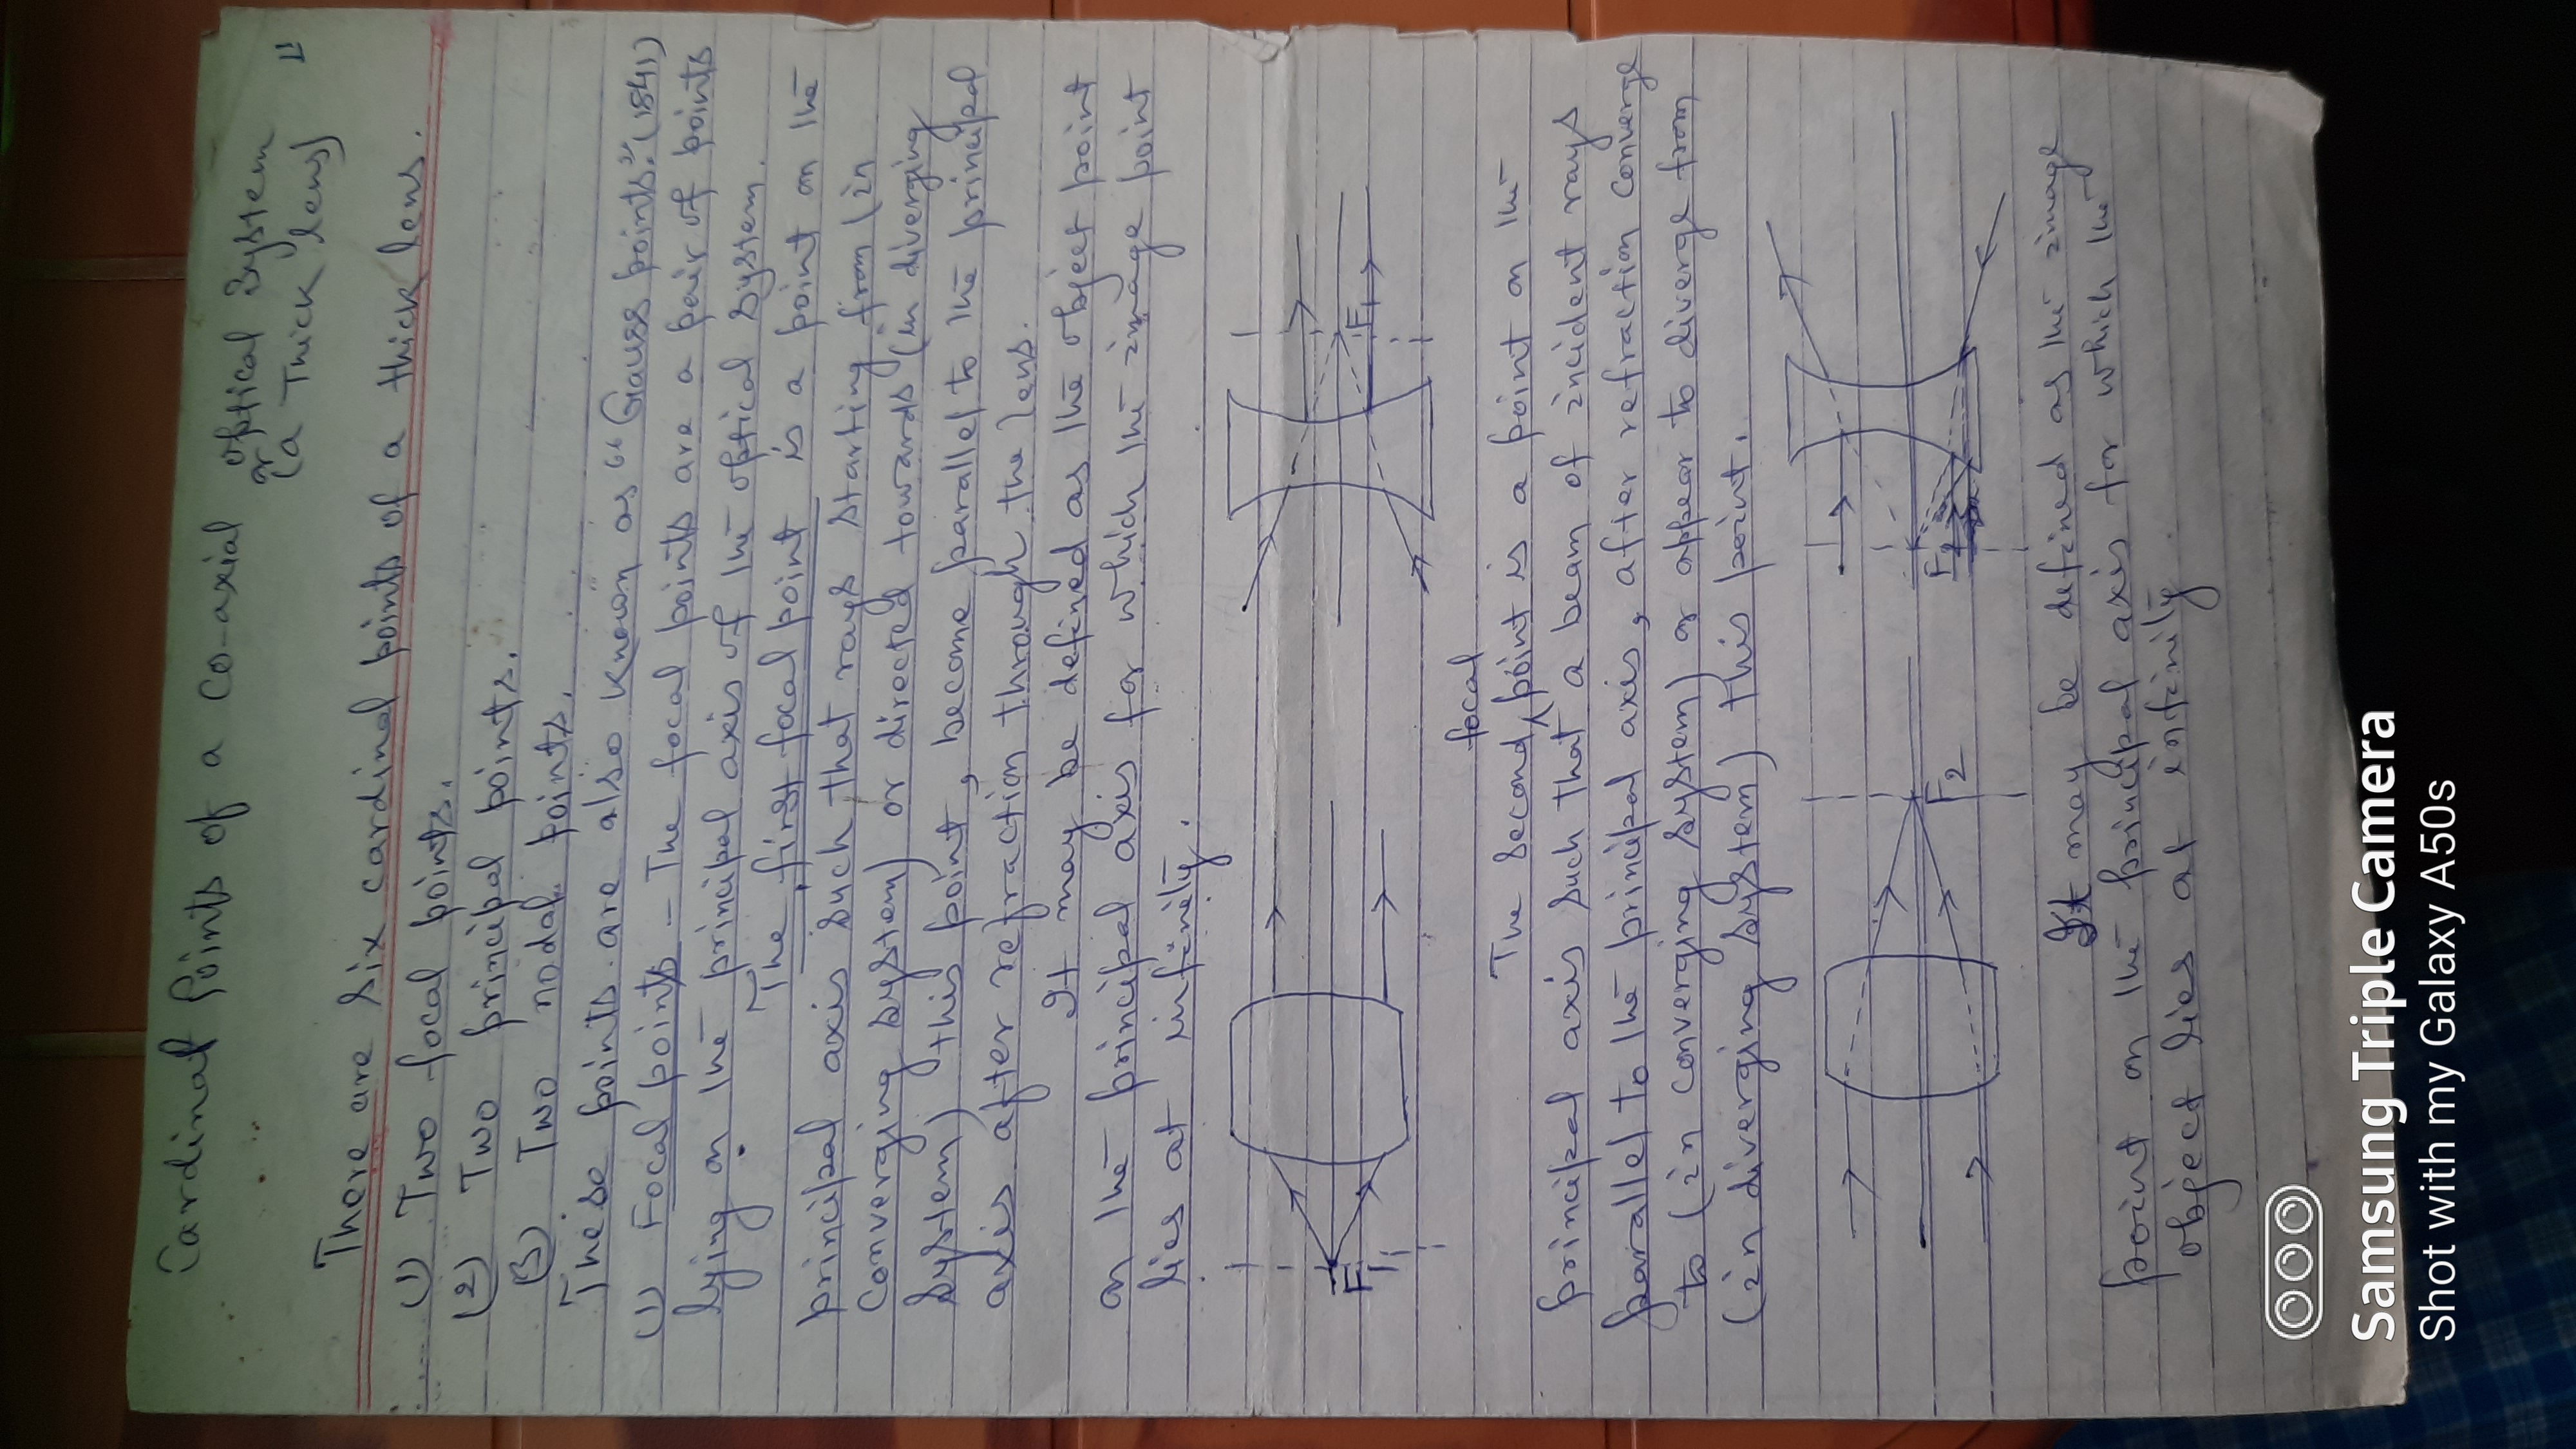 Cardinal Points of a Co-axial optical System
or (a Thick lens)
11
There are six cardinal points of a thick lens.
(1) Two focal points.
(2) Two principal points.
(3) Two nodal points.
These points are also known as "Gauss points" (1841)
(1) Focal points - The focal points are a pair of points
lying on the principal axis of the optical system.
The first focal point is a point on the
principal axis such that rays starting from (in
Converging system) or directed towards (in diverging
system) this point, become parallel to the principal
axis after refraction through the lens.
It may be defined as the object point
on the principal axis for which the image point
lies at infinity.
F1
F1
focal
The second point is a point on the
principal axis such that a beam of incident rays
parallel to the principal axis, after refraction converge
to (in converging system) or appear to diverge from
(in diverging system) this point.
F2
F2
It may be defined as the image
point on the principal axis for which the
object lies at infinity
Samsung Triple Camera
Shot with my Galaxy A50s